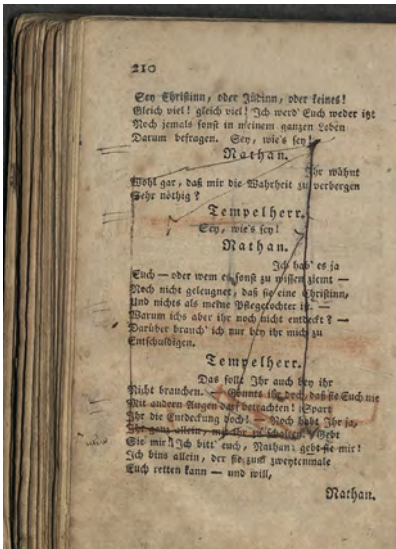 210
Sey Christinn, oder Jüdinn, oder keines!
Gleich viel! gleich viel! Ich werd' Euch weder itzt
Noch jemals sonst in meinem ganzen Leben
Darum befragen. Sey, wie's sey!
Nathan.
Ihr wähnt
Wohl gar, daß mir die Wahrheit zu verbergen
Sehr nöthig?
Tempelherr.
Sey, wie's sey!
Nathan.
Ich hab' es ja
Euch — oder wem es sonst zu wissen ziemt —
Noch nicht geleugnet, daß sie eine Christinn,
Und nichts als meine Pflegetochter ist. —
Warum ichs aber ihr noch nicht entdeckt? —
Darüber brauch' ich nur bey ihr mich zu
Entschuldigen.
Tempelherr.
Das sollt Ihr auch bey ihr
Nicht brauchen. — Gönnts ihr doch, daß sie Euch nie
Mit andern Augen darf betrachten! Spart
Ihr die Entdeckung doch! — Noch habt Ihr ja,
Ihr ganz allein, mit ihr zu schalten. Gebt
Sie mir! Ich bitt' euch, Nathan; gebt sie mir!
Ich bins allein, der sie zum zweytenmale
Euch retten kann — und will.
Nathan.